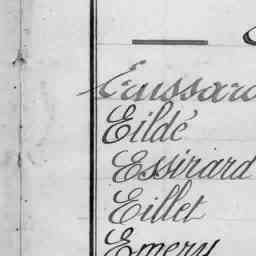 Eildé
Essirard
Eillet
Emery